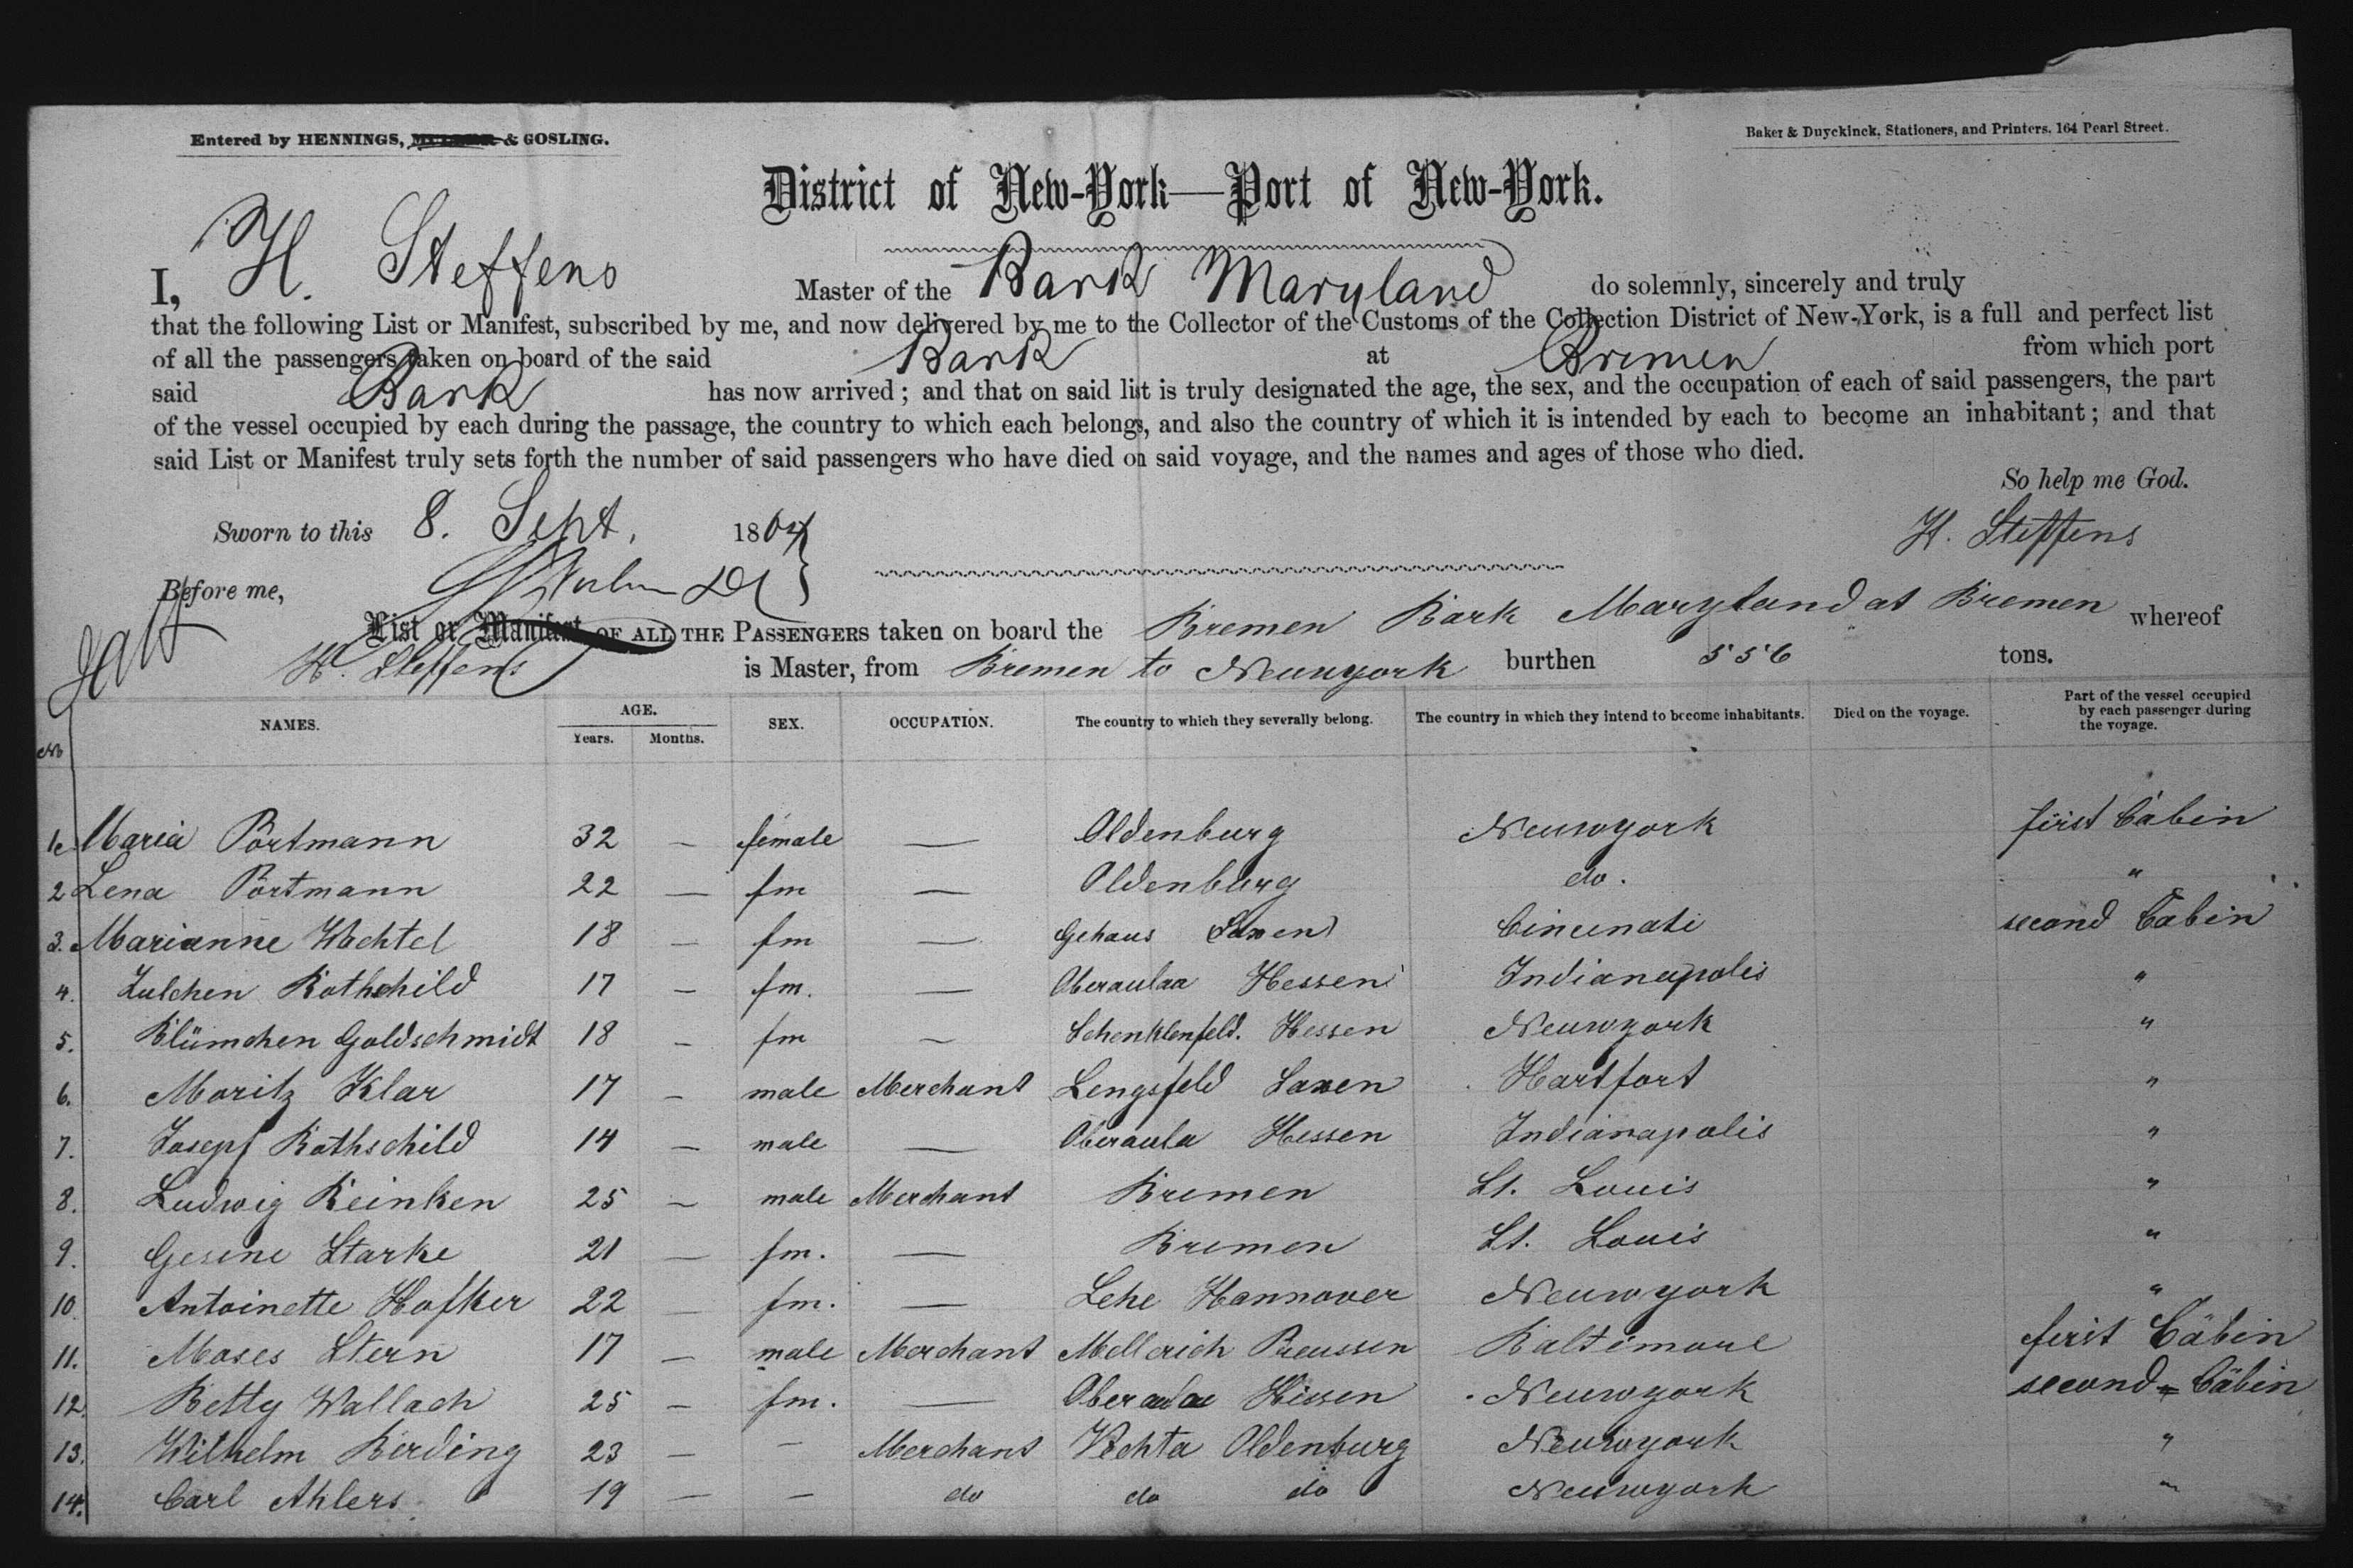 Entered by HENNINGS, & GOSLING.
Baker & Duyckinck, Stationers, and Printers. 164 Pearl Street.
District of New-York—Port of New-York.
I, H. Steffens Master of the Bark Maryland do solemnly, sincerely and truly
that the following List or Manifest, subscribed by me, and now delivered by me to the Collector of the Customs of the Collection District of New-York, is a full and perfect list
of all the passengers taken on board of the said Bark at Bremen from which port
said Bark has now arrived; and that on said list is truly designated the age, the sex, and the occupation of each of said passengers, the part
of the vessel occupied by each during the passage, the country to which each belongs, and also the country of which it is intended by each to become an inhabitant; and that
said List or Manifest truly sets forth the number of said passengers who have died on said voyage, and the names and ages of those who died.
So help me God.
Sworn to this 8. Sept. 1864
H. Steffens
Before me,
List or Manifest OF ALL THE PASSENGERS taken on board the Bremen Bark Maryland at Bremen whereof
H. Steffens is Master, from Bremen to Neuwyork burthen 556 tons.
No NAMES. AGE. Years. Months. SEX. OCCUPATION. The country to which they severally belong. The country in which they intend to become inhabitants. Died on the voyage. Part of the vessel occupied by each passenger during the voyage.
1. Maria Portmann 32 — female — Oldenburg Neuwyork first Cabin
2 Lena Portmann 22 — fm — Oldenburg do. "
3. Marianne Wechtel 18 — fm — Gehaus Saxen Cincinati second Cabin
4. Julchen Rothschild 17 — fm. — Oberaulaa Hessen Indianapolis "
5. Blümchen Goldschmidt 18 — fm — Schenklenfeld. Hessen Neuwyork "
6. Moritz Klar 17 — male Merchant Lengsfeld Saxen Hartfort "
7. Josepf Rothschild 14 — male — Oberaula Hessen Indianapolis "
8. Ludwig Reinken 25 — male Merchant Bremen St. Louis "
9. Gesine Starke 21 — fm. — Bremen St. Louis "
10. Antoinette Hofker 22 — fm. — Lehe Hannover Neuwyork "
11. Moses Stern 17 — male Merchant Mellerich Preussen Baltimore first Cabin
12. Betty Wallach 25 — fm. — Oberaula Hessen Neuwyork second Cabin
13. Wilhelm Berding 23 — — Merchant Vechta Oldenburg Neuwyork "
14. Carl Ahlers 19 — — do do do Neuwyork "